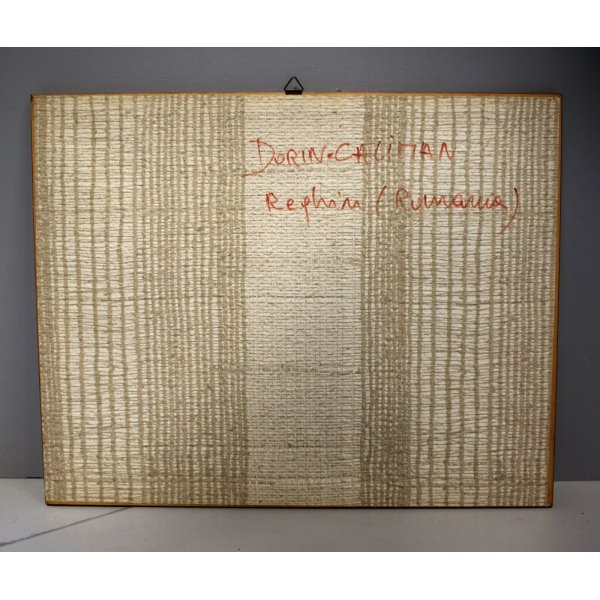 DORIN-CALIMAN
Reghin (Rumania)